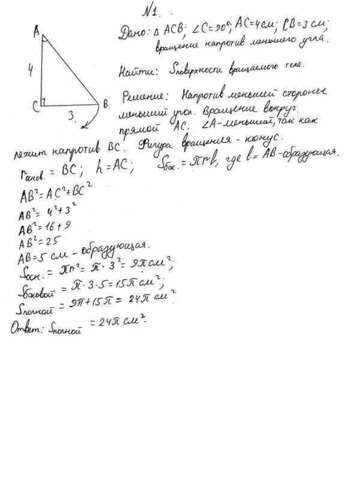 N1.
Дано: Δ ACB; ∠C=90°, AC=4см; CB=3см;
вращение напротив меньшего угла.
Найти: Sповерхности вращаемого тела.
Решение: Напротив меньшей стороны
меньший угол. Вращение вокруг
прямой AC. ∠A-меньший, так как
лежит напротив BC. Фигура вращения - конус.
rоснов. = BC; h=AC; Sбок. = πrl, где l=AB-образующая.
AB²=AC²+BC²
AB²= 4²+3²
AB²=16+9
AB²=25
AB=5 см - образующая.
Sосн. = πr² = π·3² = 9π см²;
Sбоковой = π·3·5=15π см²;
Sполной = 9π+15π = 24π см².
Ответ: Sполной = 24π см².
A
4
C
3
B